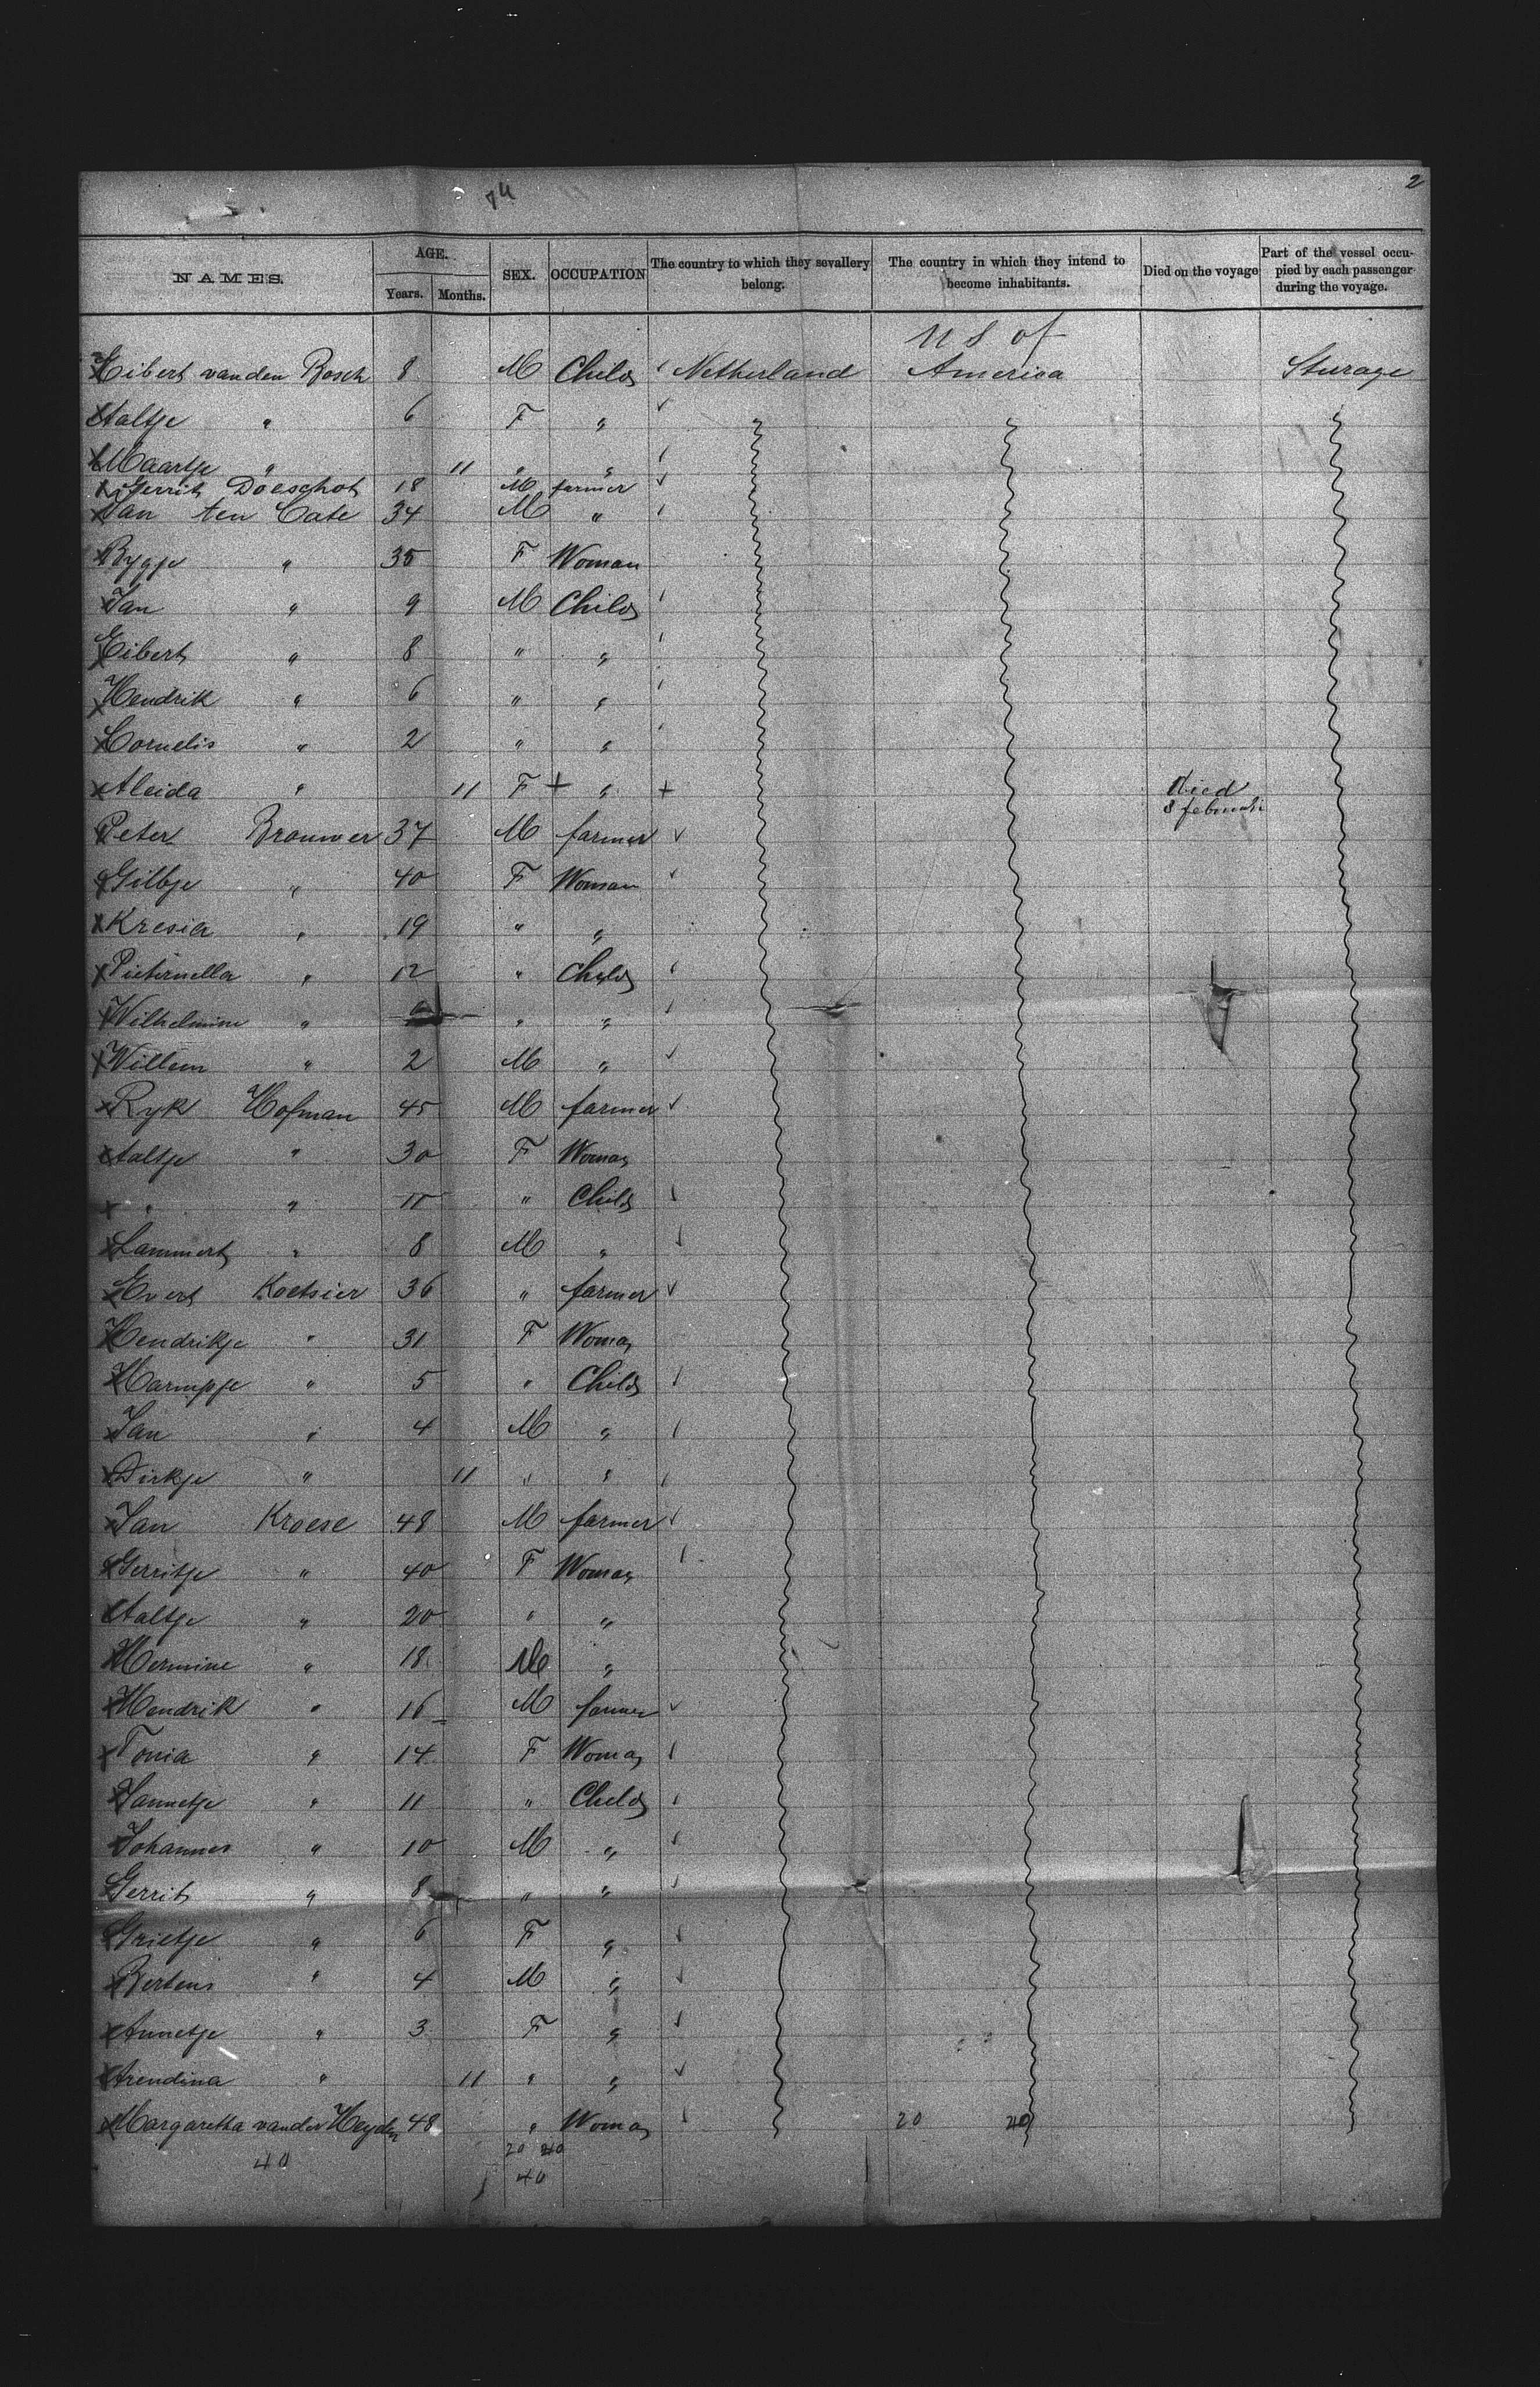 74
2
NAMES. AGE. SEX. OCCUPATION The country to which they sevallery belong. The country in which they intend to become inhabitants. Died on the voyage Part of the vessel occupied by each passenger during the voyage.
Years. Months.
U S of
Eibert van den Bosch 8 M Child Netherland America Sturage
Aaltje " 6 F "
Maartje " 11 " "
Gerrit Doeschot 18 M farmer
Jan ten Cate 34 M "
Bygje " 35 F Woman
Jan " 9 M Child
Eibert " 8 " "
Hendrik " 6 " "
Cornelis " 2 " "
Aleida " 11 F + " + Died
8 februari
Peter Brouwer 37 M farmer
Gilbje " 40 F Woman
Kresia " 19 " "
Pieternella " 12 " Child
Wilhelmine " " "
Willem " 2 M "
Ryk Hofman 45 M farmer
Aaltje " 30 F Woman
" " 11 " Child
Lammert " 8 M "
Evert Koetsier 36 " farmer
Hendrikje " 31 F Woman
Harmpje " 5 " Child
Jan " 4 M "
Dirkje " 11 " "
Jan Kroese 48 M farmer
Gerritje " 40 F Woman
Aaltje " 20 " "
Hermine " 18 "
Hendrik " 16 M farmer
Tonia " 14 F Woman
Jannetje " 11 " Child
Johannes " 10 M "
Gerrit " 8 " "
Grietje " 6 F "
Bertens " 4 M "
Annetje " 3 F "
Arendina " 11 " "
Margaretha van der Heyden 48 " Woman 20 20
20 20
40 40